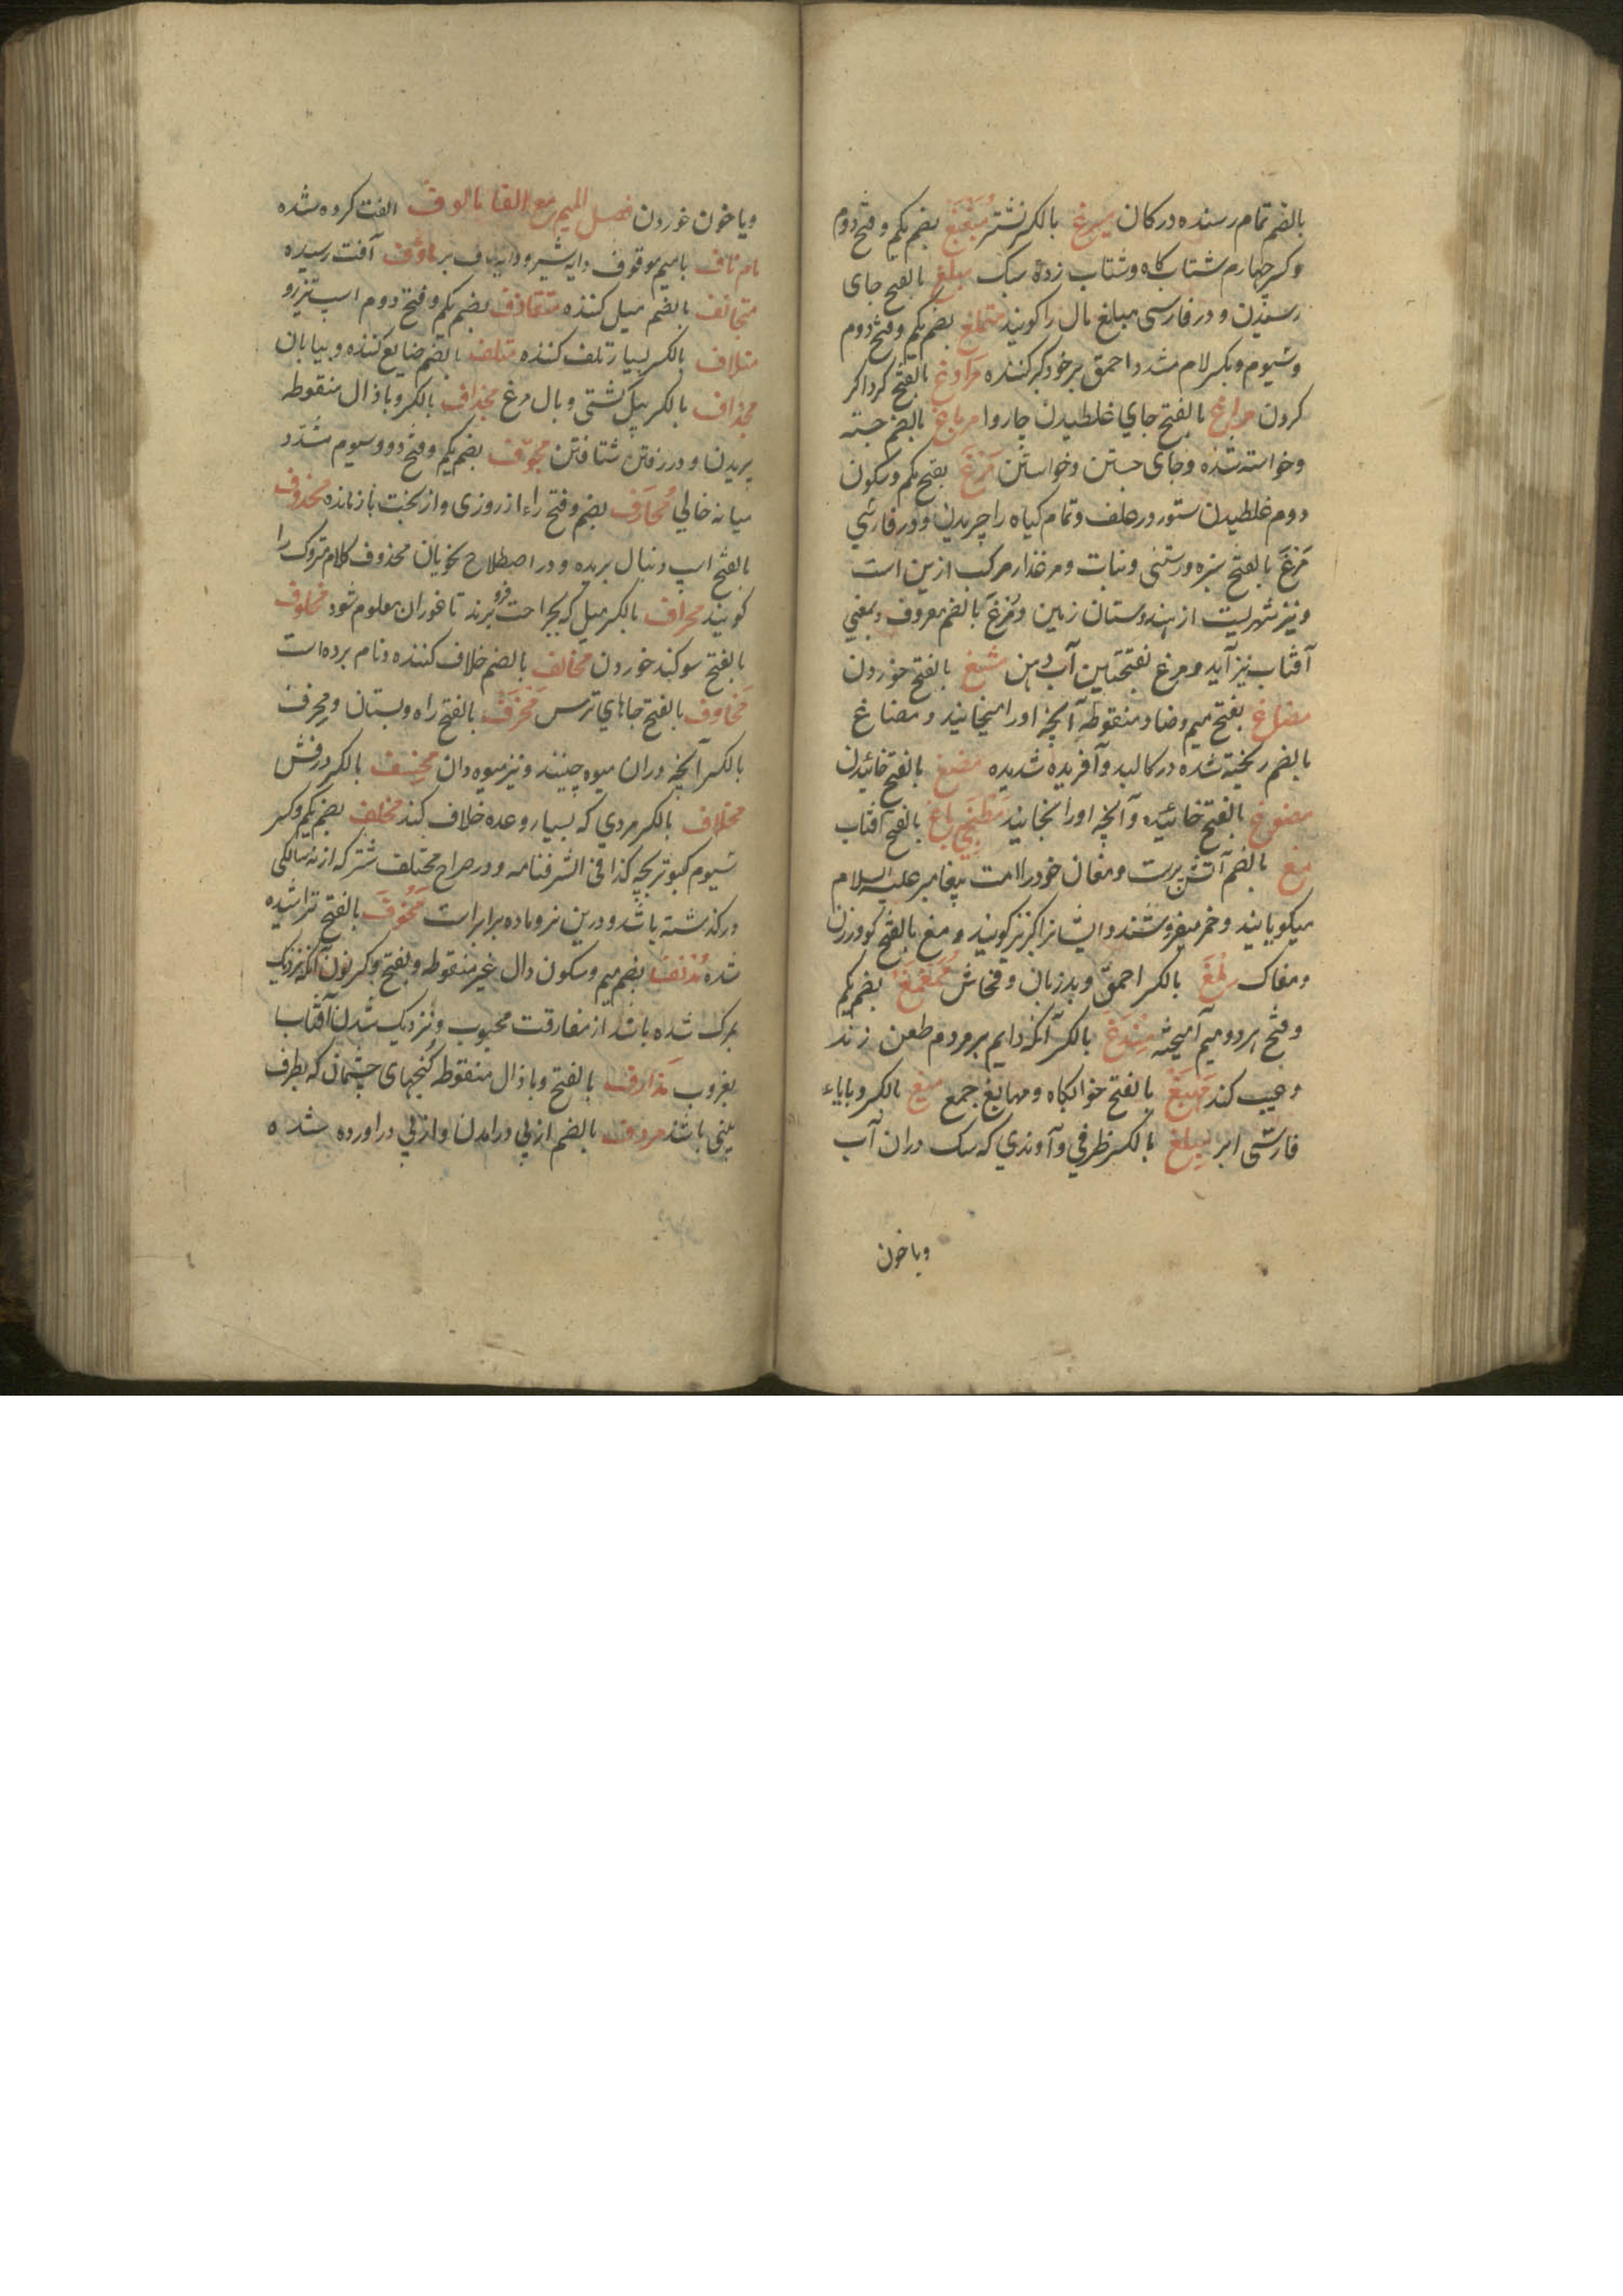 بالضم تمام رسنده در کان میزغ بالکسر نشتر مبغبغ بضم یکم و فتح دوم
و کسر چهارم شتاب کاه و شتاب زده سبک مبلغ بالفتح جای
رسیدن و در فارسی مبلغ مال را کویند متملغ بضم یکم و فتح دوم
و سیوم و بکسر لام مشدد احمق بر خود کبر کننده مراوغ بالفتح کرداکر
کردن مراغ بالفتح جای غلطیدن چاروا مرباغ بالضم جسته
و خواسته شده و جای جستن و خواستن مرغ بفتح یکم و سکون
دوم غلطیدن ستور در علف و تمام کیاه را چریدن و در فارسی
مرغ بالفتح سبزه و رستنی و نبات و مرغزار مرکب ازین است
و نیز شهریست از هندوستان زمین و مرغ بالضم معروف و بمعنی
آفتاب نیز آید و مرغ بفتحتین آب دهن مشغ بالفتح خوردن
مضاغ بفتح میم و ضاد منقوطه آنچه او را میخایند و مضاغ
بالضم ریخته شده در کالبد و آفریده شدیده مضغ بالفتح خائیدن
مضوغ بالفتح خائیده و آنچه او را بخایند مطبخی باغ بالفتح افتاب
مغ بالضم آتش پرست و مغان خود را امت پیغامبر علیه السلام
میکویانید و خمر میفروشند و ایشانرا کبر نیز کویند و مغ بالفتح کو و زرن
و مغاک ملغ بالکسر احمق و بد زبان و فحاش ممغمغ بضم یکم
و فتح هر دو میم آمیخته مندغ بالکسر آنکه دایم بر مردم طعن زند
و عیب کند مهبغ بالفتح خوابکاه و مهابغ جمع میغ بالکسر و بایاء
فارسی ابر میلغ بالکسر ظرفی و آوندی که سک دران آب
و یا خون
و یا خون خوردن فصل المیم مع الفا مالوف الفت کرده شده
مام ناف با میم موقوف دایه شیر و دایه ناف بر ماؤف آفت رسیده
متجانف بالضم میل کننده متقاذف بضم یکم و فتح دوم اسپ تیز رو
متلاف بالکسر بسیار تلف کننده متلف بالضم ضایع کننده و بیابان
مجداف بالکسر بیل کشتی و بال مرغ مجذاف بالکسر و با ذال منقوطه
پریدن و در رفتن شتافتن مجوف بضم یکم و فتح دو و سیوم مشدد
میانه خالی محارف بضم و فتح راء از روزی و از بخت بازمانده محذوف
بالفتح اسپ دنبال بریده و در اصطلاح نحویان محذوف کلام متروک را
کویند محراف بالکسر میل که بجراحت فرو برند تا غور آن معلوم شود محلوف
بالفتح سوکند خوردن مخالف بالضم خلاف کننده و نام برده است
مخاوف بالفتح جاهای ترس مخرف بالفتح راه و بستان و مخرف
بالکسر آنچه دران میوه چینند و نیز میوه دان مخصف بالکسر درفش
مخلاف بالکسر مردی که بسیار وعده خلاف کند مخلف بضم یکم و کسر
سیوم کبوتر بچه کذا فی الشرفنامه و در صراح مختلف شتر که از نه سالکی
درکذشته باشد و درین نر و ماده برابر است مخوف بالفتح تراشیده
شده مدنف بضم میم و سکون دال غیر منقوطه و بفتح و کسر نون آنکه نزدیک
بمرک شده باشد از مفارقت محبوب و نزدیک شدن آفتاب
بغروب مذارف بالفتح و با ذال منقوطه کنجهای چشمان که بطرف
بینی باشد مردف بالضم از پی درامدن و از پی در اورده شده